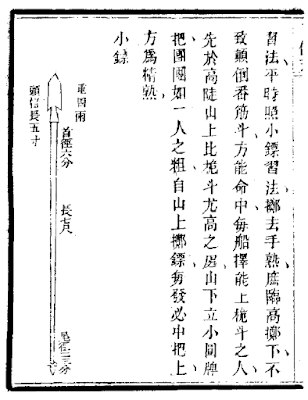 習法平時照小鏢習法擲去手熟庶臨高擲下不
致顛倒番觔斗方能命中每船擇能上桅斗之人
先於高陡山上比桅斗尤高之處山下立小圓牌
把團團如一人之粗自山上擲鏢每發必中把上
方爲精熟
小鏢
重四兩
頭信長五寸
首徑六分
長七尺
尾徑三分